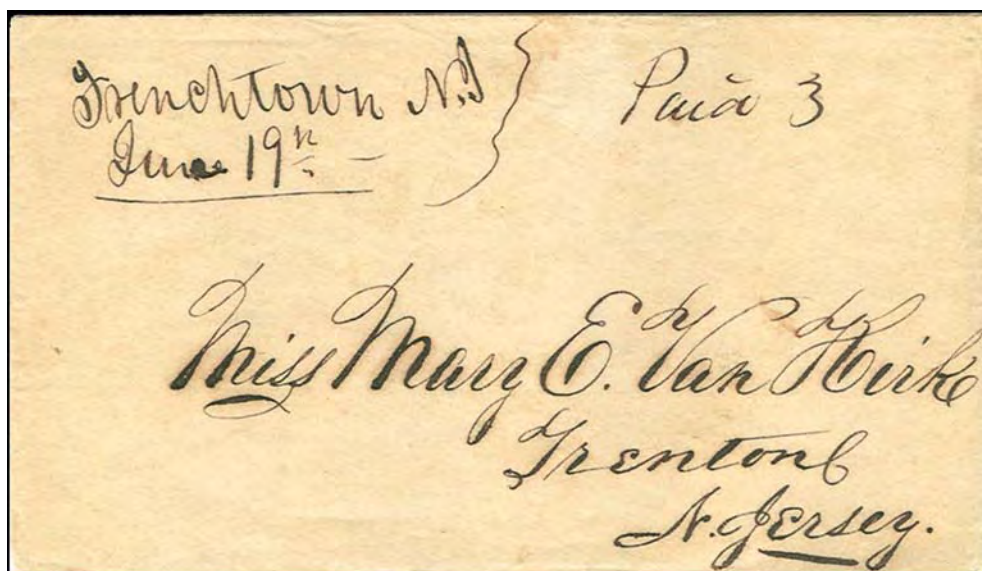 Frenchtown N.J
Paid 3
June 19th
Miss Mary E. Van Kirk
Trenton
N. Jersey.